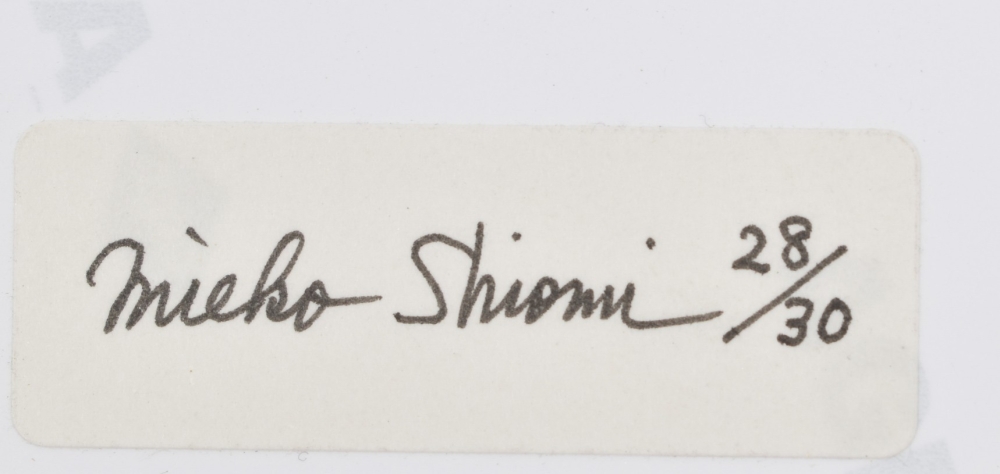 Mieko Shiomi 28/30